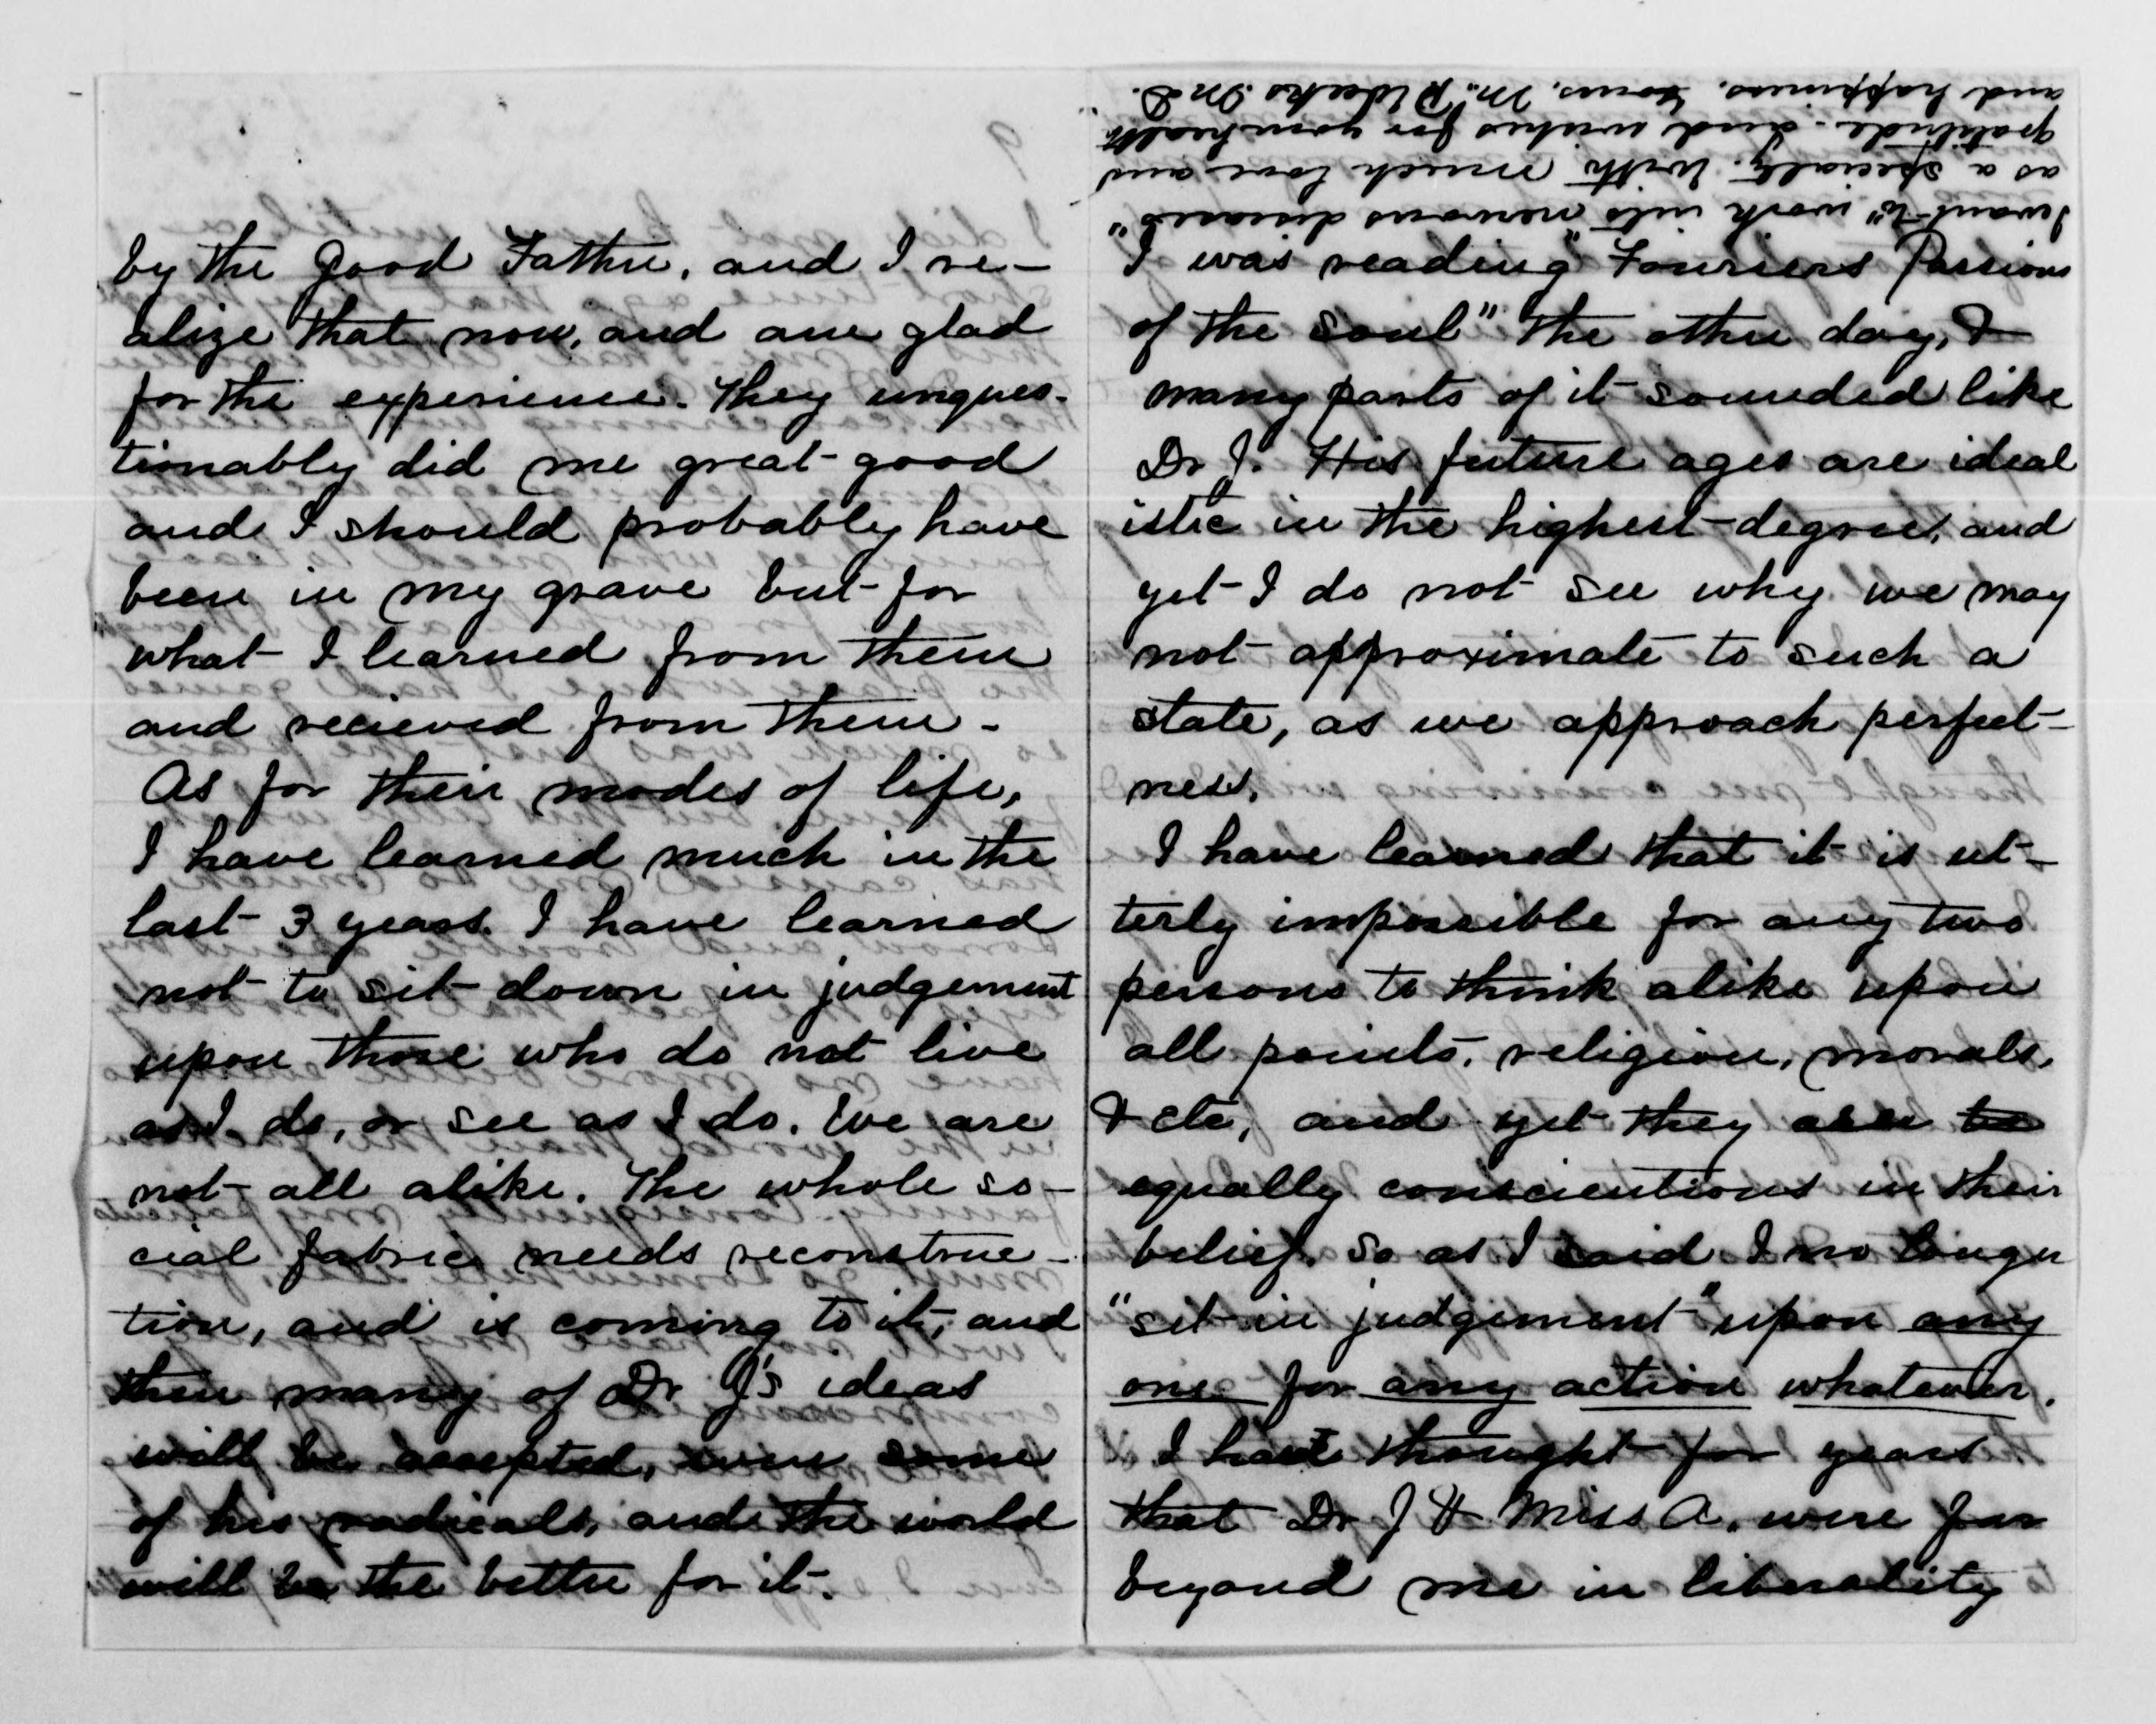 by the Good Father, and I re-
alize that now, and am glad
for the experience. They unques-
tionably did me great good
and I should probably have
been in my grave but for
what I learned from them
and recieved from them.
As for their modes of life,
I have learned much in the
last 3 years. I have learned
not to sit down in judgement
upon those who do not live
as I do, or see as I do. We are
not all alike. The whole so-
cial fabric needs reconstruc-
tion, and is coming to it, and
then many of Dr J's ideas
will be accepted, even some
of his radicals, and the world
will be the better for it.
I want to "work into "nervous diseases"
as a specialty. With much love and
gratitude and wishes for your health
and happiness. Yours, M. R. Weeks M D.
I was reading "Fouriers Passions
of the Soul" the other day, &
many parts of it sounded like
Dr J. His future ages are ideal
istic in the highest degree, and
yet I do not see why we may
not approximate to such a
state, as we approach perfect-
ness.
I have learned that it is ut-
terly impossible for any two
persons to think alike upon
all points, religion, morals,
& etc, and yet they are
equally conscientious in their
belief. So as I said I no longer
"sit in judgement" upon any
one for any action whatever.
I have thought for years
that Dr J & Miss A. were far
beyond me in liberality